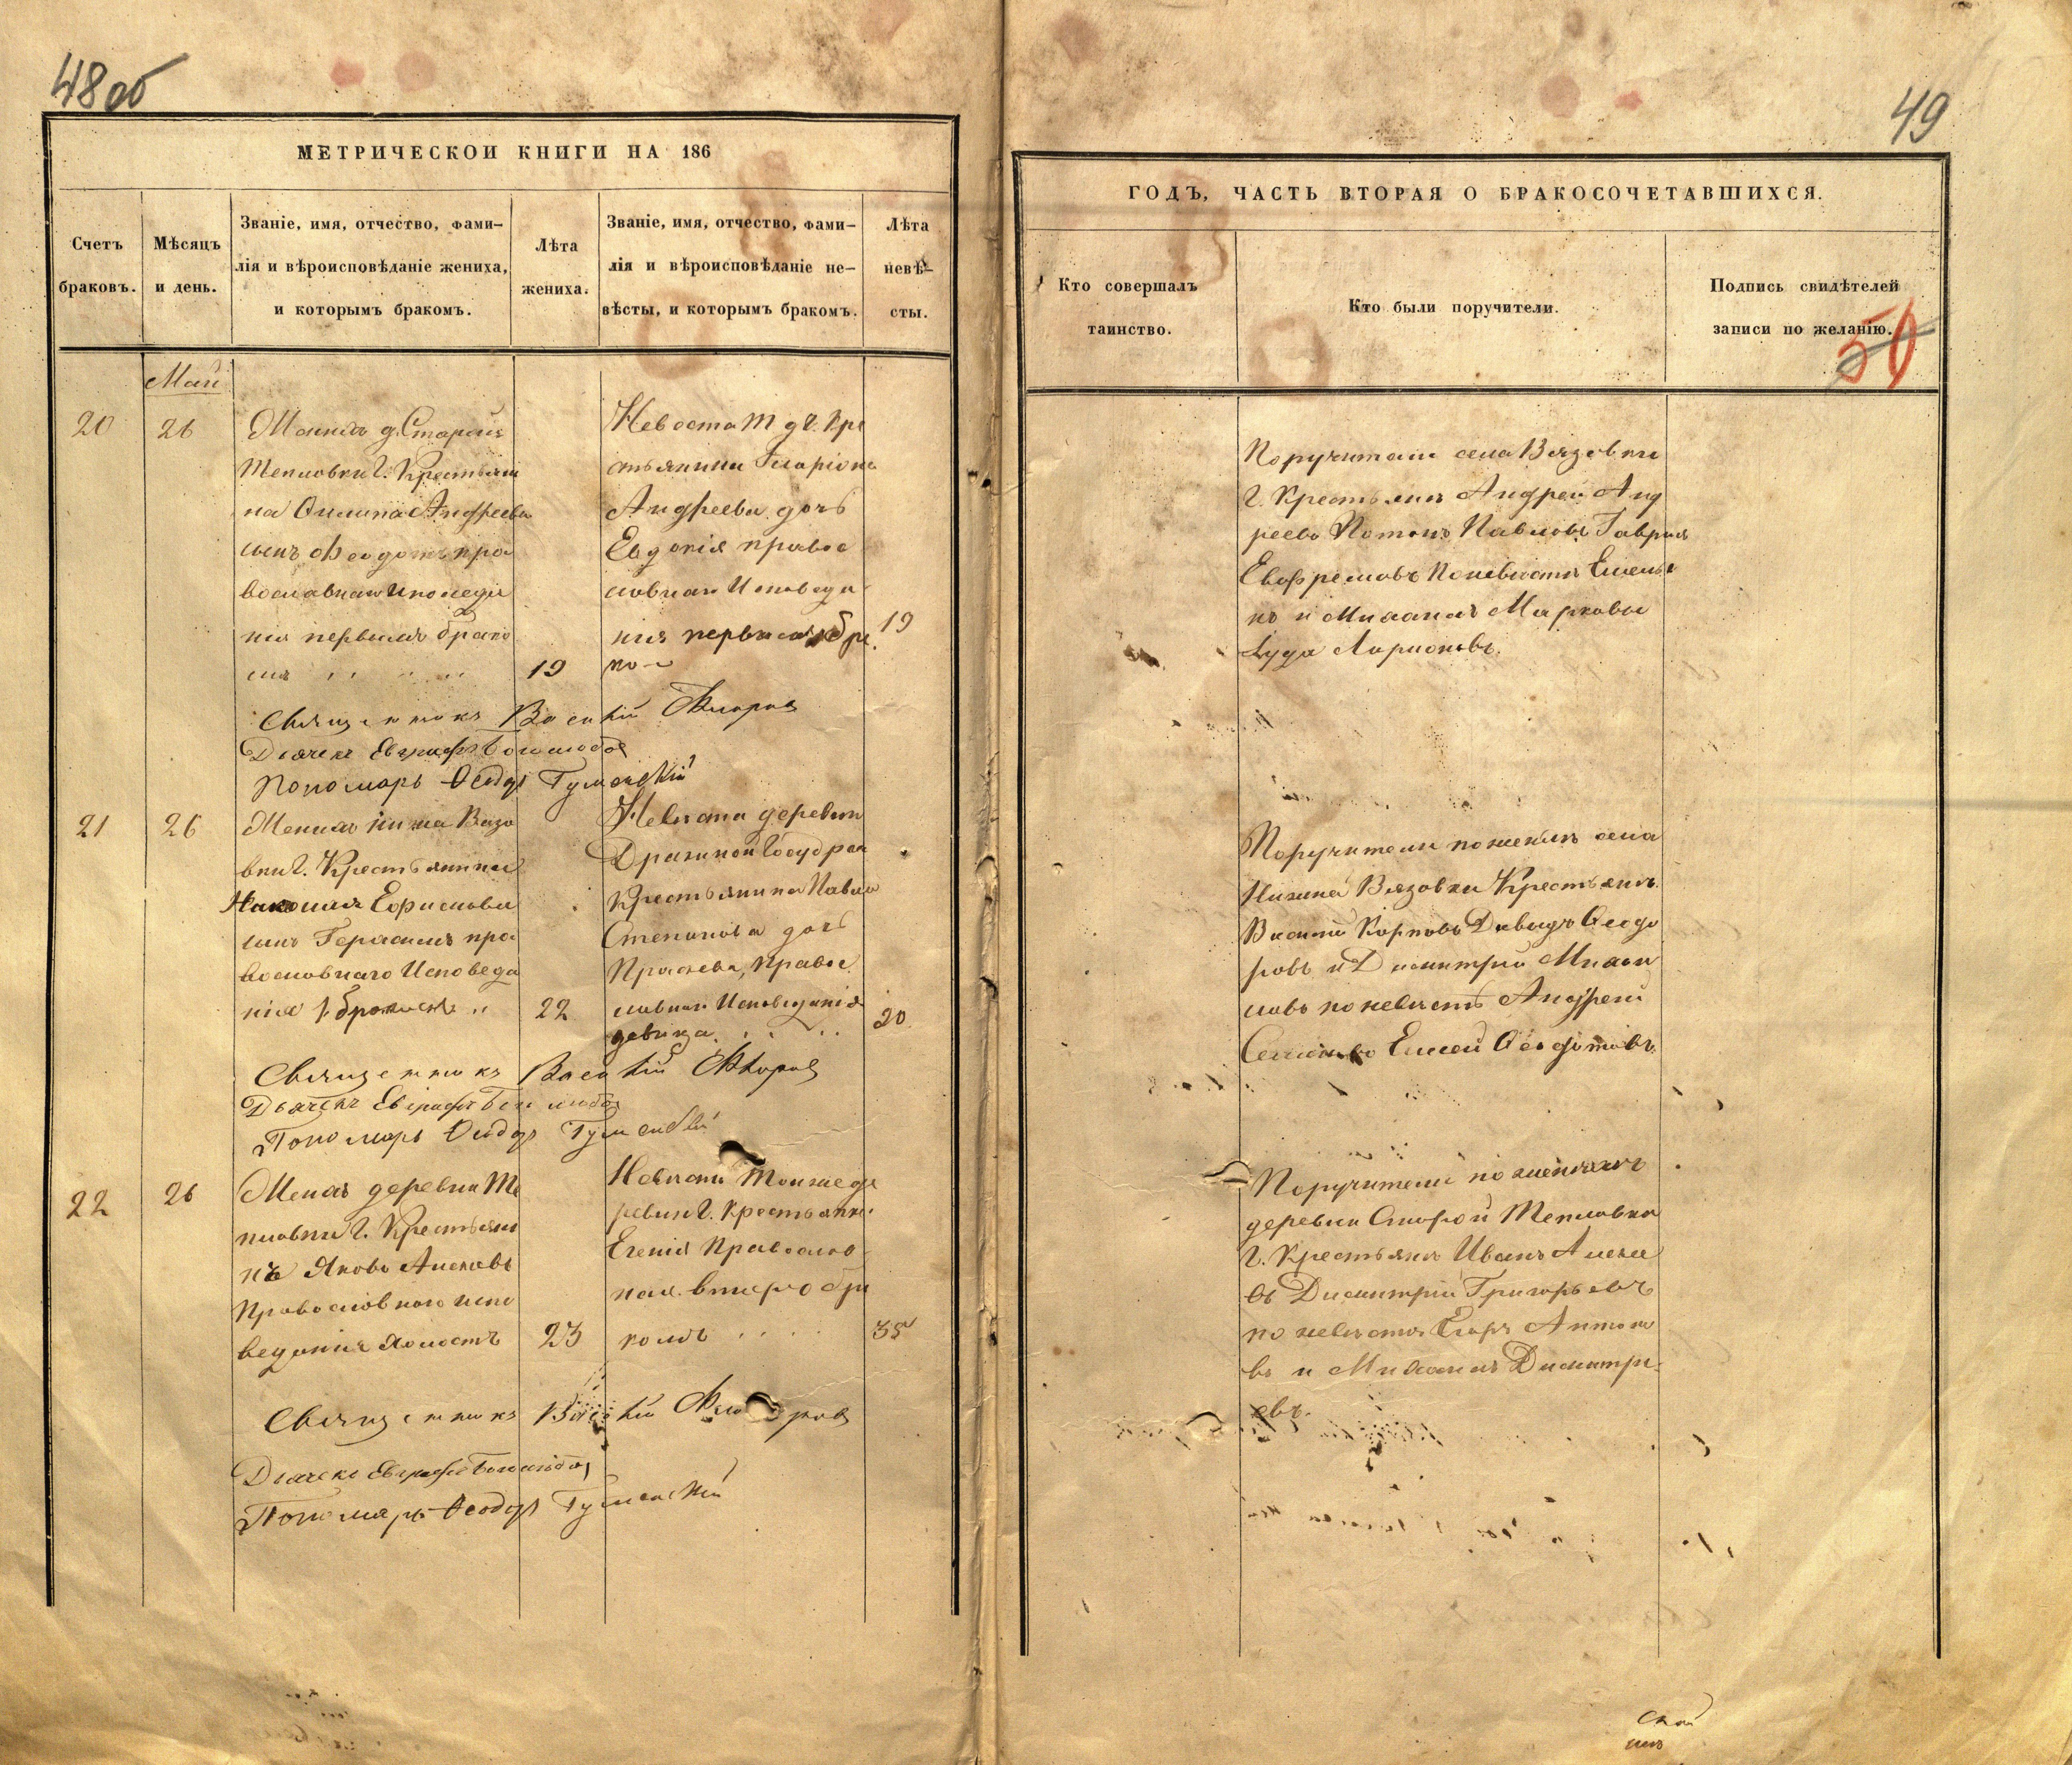 48 об
МЕТРИЧЕСКОЙ КНИГИ НА 186
Счетъ браковъ.
Мѣсяцъ и день.
Званіе, имя, отчество, фами-
лія и вѣроисповѣданіе жениха,
и которымъ бракомъ.
Лѣта
жениха.
Званіе, имя, отчество, фами-
лія и вѣроисповѣданіе не-
вѣсты, и которымъ бракомъ.
Лѣта
невѣ-
сты.
Май
20
26
Жених д. Старой
Тепловки Г. Крестьяни
на Филипа Андреева
сынъ Феодотъ пра
вославнаго Исповеда
нія первымъ брако
мъ
19
Невеста т д Г. Кре
стьянина Иларіона
Андреева дочь
Евдокія правос
лавнаго Исповеда
нія первымъ бра
ко
19
Священникъ Василій Флоровъ
Дьячекъ Евграфъ Боголюбов
Пономарь Феодоръ Туманскій
21
26
Женихъ Нижна Вязо
вки Г. Крестьянина
Николая Ефимова
сынъ Герасимъ пра
вославнаго Исповеда
нія 1 бракомъ
22
Невеста деревни
Государ
Крестьянина Павла
Степанова дочь
правос
лавнаго Исповеданія
девица
20
Священникъ Василій Флоровъ
Дьячекъ Евграфъ Боголюбов
Пономарь Феодоръ Туманскій
22
26
Женихъ деревни Те
пловки Г. Крестьяни
нъ Яковъ
Православнаго испо
веданія холостъ
23
Невеста Тойже де
ревни Г. Крестьянка
Православ
ная вторы бра
комъ
35
Священникъ Василій Флоровъ
Дьячекъ Евграфъ Боголюбов
Пономарь Феодоръ Туманскій
49
ГОДЪ, ЧАСТЬ ВТОРАЯ О БРАКОСОЧЕТАВШИХСЯ.
Кто совершалъ
таинство.
Кто были поручители.
Подпись свидѣтелей
записи по желанію.
50
Поручители села Вязовки
Г. Крестьянъ Андрей Анд
реевъ Потапъ Павловъ Гаврила
Евфремовъ По невесте Емелья
нъ и Михаилъ Марковы
Іуда Ларионовъ.
Поручители по женихе села
Нижней Вязовки Крестьянъ
Василий Карповъ Давыдъ Феодо
ровъ и Димитрий Михаи
ловъ по невесте Андрей
Семеновъ Елисей Феодотовъ
Поручители по женихе
деревни Старой Тепловки
Г. Крестьянъ Иванъ Алексе
въ Димитрий Григорьевъ
по невесте Егоръ Антоно
въ и Михаилъ Димитри-
евъ.